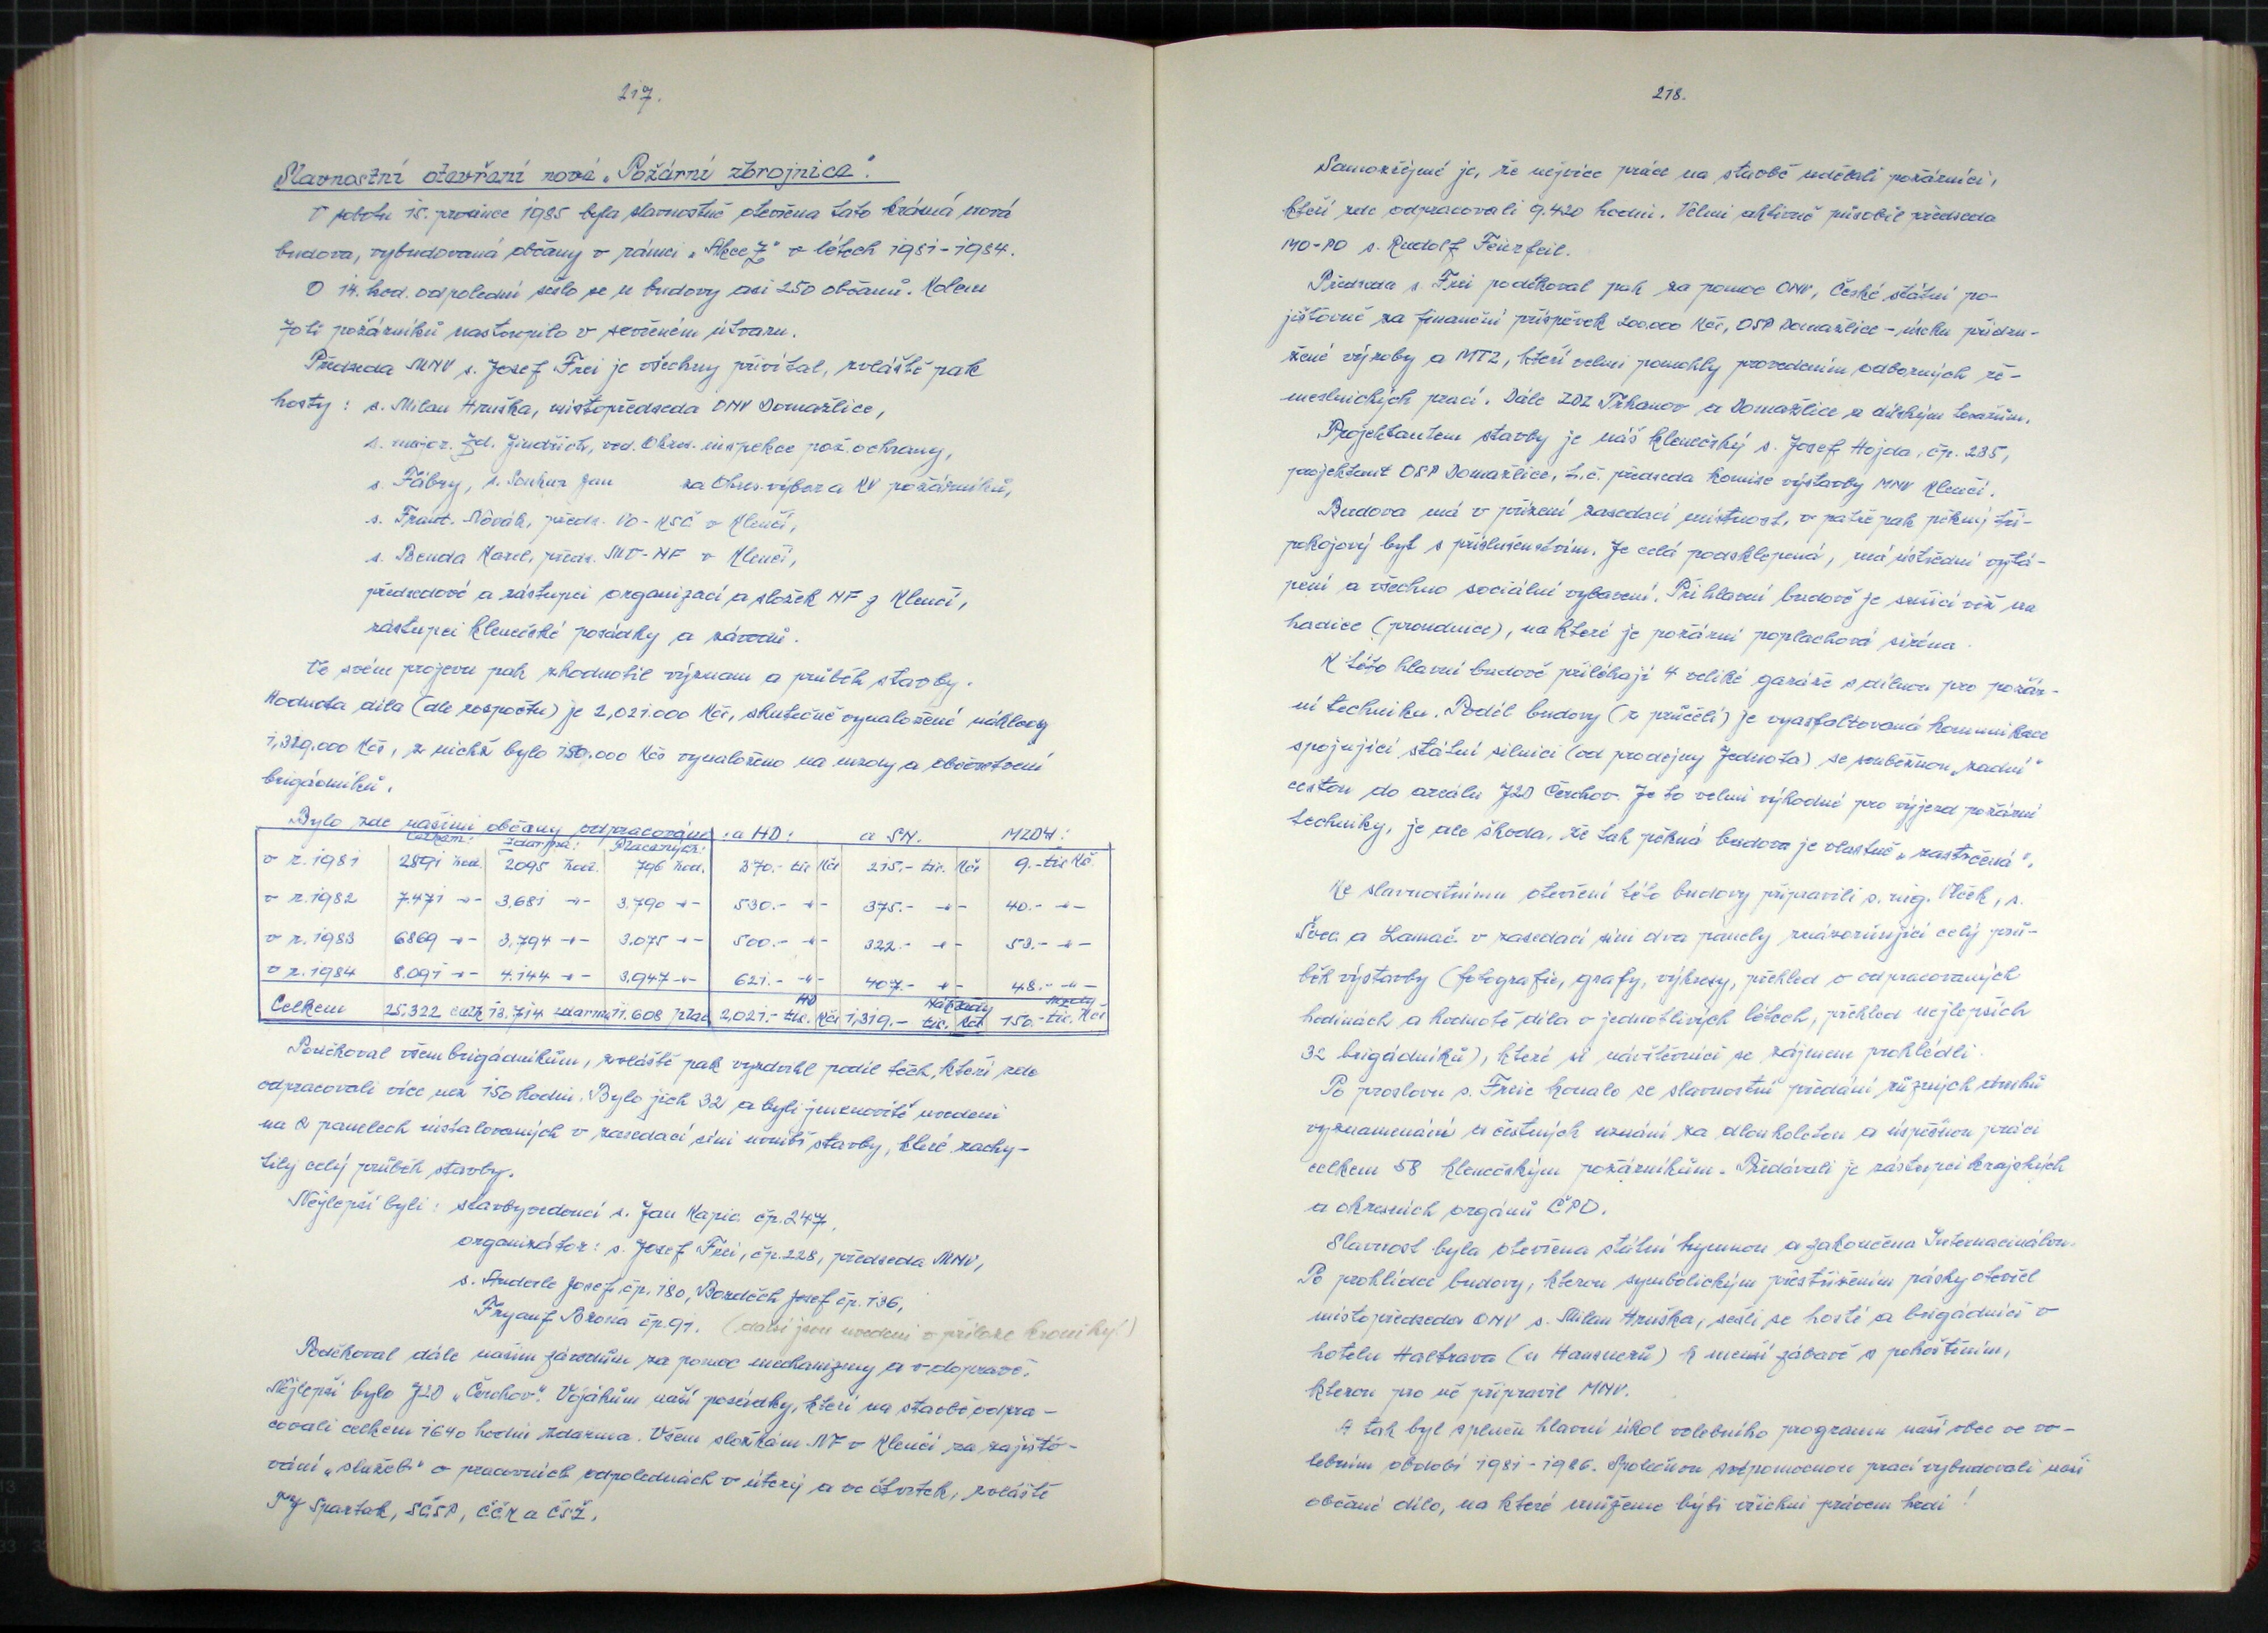 217.
Slavnostní otevření nové „Požární zbrojnice".
V sobotu 15. prosince 1985 byla slavnostně otevřena tato krásná nová
budova, vybudovaná občany v rámci „Akce Z" v létech 1981-1984.
O 14. hod. odpolední sešlo se u budovy asi 250 občanů. Kolem
70ti požárníků nastoupilo v sevřeném útvaru.
Předseda MNV s. Josef Frei je všechny přivítal, zvláště pak
hosty: s. Milan Hruška, místopředseda ONV Domažlice,
s. major. Zd. Jindřich, ved. Okres. inspekce pož. ochrany,
s. Fábry, s. Soukup Jan za Okres. výbor a KV požárníků,
s. Frant. Novák, předs. VO-KSČ v Klenčí,
s. Benda Karel, předs. MV-NF v Klenčí,
předsedové a zástupci organizací a složek NF z Klenčí,
zástupci klenečské posádky a závodů.
Ve svém projevu pak zhodnotil význam a průběh stavby.
Hodnota díla (dle rozpočtu) je 2,021.000 Kčs, skutečně vynaložené náklady
1,319.000 Kčs, z nichž bylo 150.000 Kčs vynaloženo na mzdy a občerstvení
brigádníků.
Bylo zde našimi občany odpracováno: a HD: a SN. MZDY:
Celkem: Zdarma: Placených:
v r. 1981 2891 hod. 2095 hod. 796 hod. 370.- tis Kčs 215.- tis. Kčs 9.- tis Kč
v r. 1982 7.471 -"- 3.681 -"- 3.790 -"- 530.- -"- 375.- -"- 40.- -"-
v r. 1983 6869 -"- 3.794 -"- 3.075 -"- 500.- -"- 322.- -"- 53.- -"-
v r. 1984 8.091 -"- 4.144 -"- 3.947 -"- 621.- -"- 407.- -"- 48.- -"-
HD Náklady Mzdy
Celkem 25.322 celk 13.714 zdarma 11.608 plac 2,021.- tis. Kčs 1,319.- tis. Kčs 150.- tis. Kčs
Poděkoval všem brigádníkům, zvláště pak vyzdvihl podíl těch, kteří zde
odpracovali více než 150 hodin. Bylo jich 32 a byli jmenovitě uvedeni
na 2 panelech instalovaných v zasedací síni uvnitř stavby, které zachy-
tily celý průběh stavby.
Nejlepší byli: stavbyvedoucí s. Jan Kapic čp. 247,
organizátor: s. Josef Frei, čp. 228, předseda MNV,
s. Anderle Josef čp. 180, Bozděch Josef čp. 136,
Fryauf Brona čp. 91. (další jsou uvedeni v příloze kroniky!)
Poděkoval dále našim závodům za pomoc mechanizmy a v dopravě.
Nejlepší bylo JZD „Čerchov". Vojákům naší posádky, kteří na stavbě odpra-
covali celkem 1640 hodin zdarma. Všem složkám NF v Klenčí za zajišťo-
vání „služeb" o pracovních odpolednách v úterý a ve čtvrtek, zvláště
TJ Spartak, SČSP, ČČK a ČSŽ.
218.
Samozřejmé je, že nejvíce práce na stavbě udělali požárníci,
kteří zde odpracovali 9.420 hodin. Velmi aktivně působil předseda
MO-PO s. Rudolf Feierfeil.
Předseda s. Frei poděkoval pak za pomoc ONV, České státní po-
jišťovně za finanční příspěvek 200.000 Kčs, OSP Domažlice - úseku přidru-
žené výroby a MTZ, kteří velmi pomohly provedením odborných ře-
meslnických prací. Dále ZDZ Trhanov a Domažlice a dílským tesařům.
Projektantem stavby je náš klenečský s. Josef Hojda, čp. 285,
projektant OSP Domažlice, t.č. předseda komise výstavby MNV Klenčí.
Budova má v přízemí zasedací místnost, v patře pak pěkný tří-
pokojový byt s příslušenstvím. Je celá podsklepená, má ústřední vytá-
pění a všechno sociální vybavení. Při hlavní budově je sušicí věž na
hadice (proudnice), na které je požární poplachová siréna.
K této hlavní budově přiléhají 4 veliké garáže s dílnou pro požár-
ní techniku. Podél budovy (v průčelí) je vyasfaltovaná komunikace
spojující státní silnici (od prodejny Jednota) se souběžnou „zadní"
cestou do areálu JZD Čerchov. Je to velmi výhodné pro výjezd požární
techniky, je ale škoda, že tak pěkná budova je vlastně „zastrčená".
Ke slavnostnímu otevření této budovy připravili s. ing. Vlček, s.
Švec a Lamač v zasedací síni dva panely znázorňující celý prů-
běh výstavby (fotografie, grafy, výkresy, přehled o odpracovaných
hodinách a hodnotě díla v jednotlivých létech, přehled nejlepších
32 brigádníků), které si návštěvníci se zájmem prohlédli.
Po proslovu s. Freie konalo se slavnostní předání různých druhů
vyznamenání a čestných uznání za dlouholetou a úspěšnou práci
celkem 58 klenečským požárníkům. Předávali je zástupci krajských
a okresních orgánů ČPO.
Slavnost byla otevřena státní hymnou a zakončena Internacinálou.
Po prohlídce budovy, kterou symbolickým přestřižením pásky otevřel
místopředseda ONV s. Milan Hruška, sešli se hosté a brigádníci v
hotelu Haltrava (u Hausnerů) k menší zábavě s pohoštěním,
kterou pro ně připravil MNV.
A tak byl splněn hlavní úkol volebního programu naší obce ve vo-
lebním období 1981-1986. Společnou svépomocnou prací vybudovali naši
občané dílo, na které můžeme býti všichni právem hrdi!